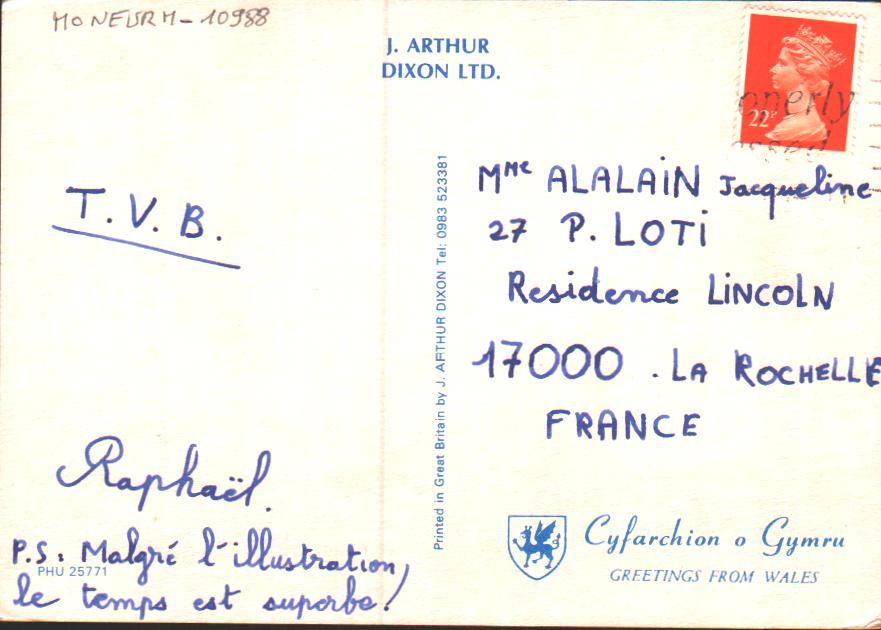 MONEURM-10988
J. ARTHUR
DIXON LTD.
22P
onerly
essed
T.V.B.
Raphaël.
P.S: Malgré l'illustration,
le temps est superbe!
PHU 25771
Printed in Great Britain by J. ARTHUR DIXON Tel: 0983 523381
Mme ALALAIN Jacqueline
27 P. LOTI
Residence LINCOLN
17000 . LA ROCHELLE
FRANCE
Cyfarchion o Gymru
GREETINGS FROM WALES